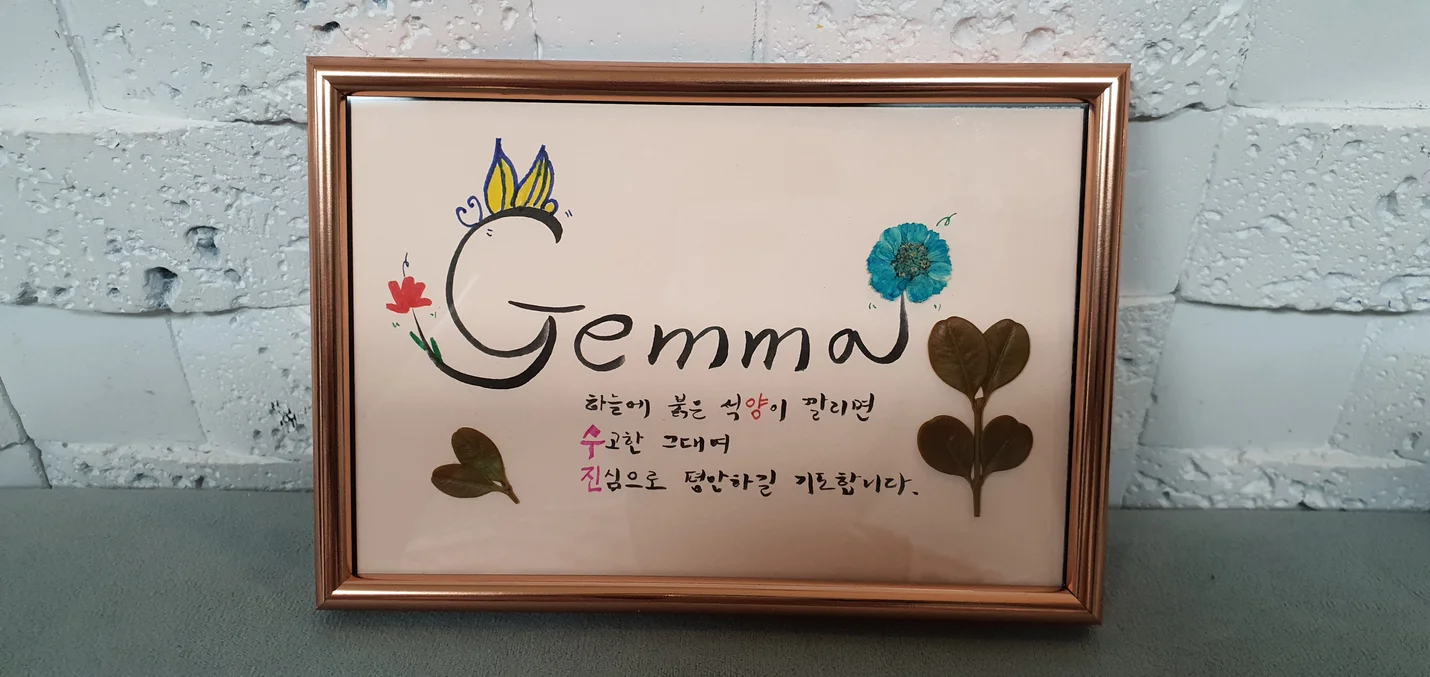 Gemma
하늘에 붉은 석양이 깔리면
수고한 그대여
진심으로 평안하길 기도합니다.